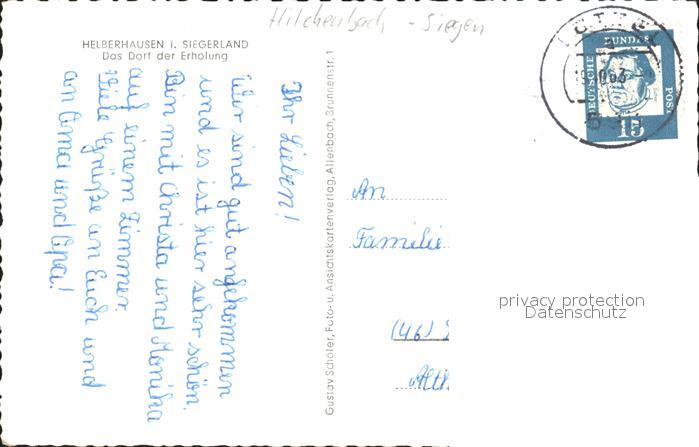 Hilchenbach - Siegen
HELBERHAUSEN i. SIEGERLAND
Das Dorf der Erholung
Ihr Lieben!
Wir sind gut angekommen
und es ist hier sehr schön.
Bin mit Christa und Monika
auf einem Zimmer.
Viele Grüße an Euch und
an Oma und Opa!
Gustav Schöler, Foto- u. Ansichtskartenverlag, Allenbach, Brunnenstr. 1
An
Familie
(46)
Alth
DEUTSCHE
BUNDES
POST
15
privacy protection
Datenschutz